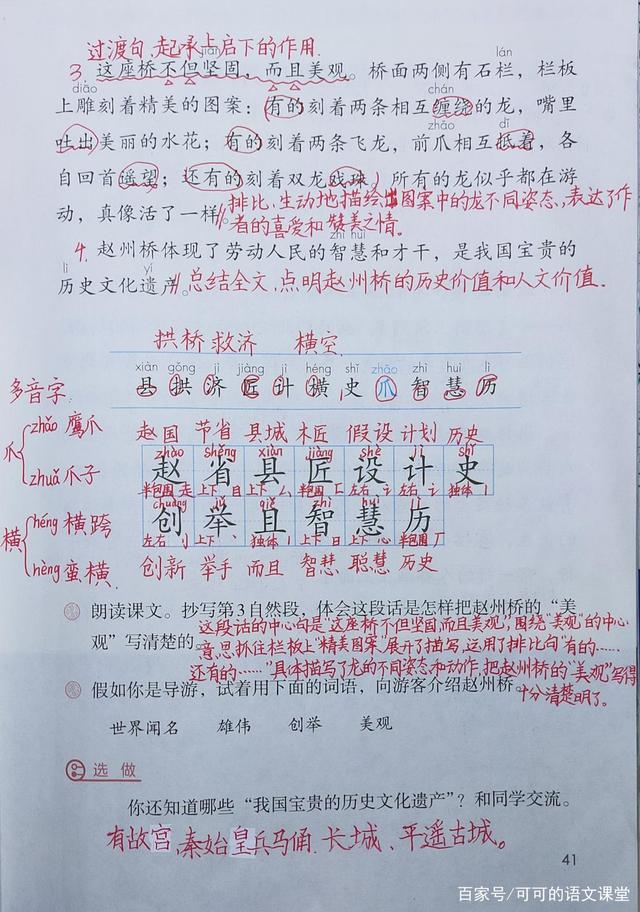 过渡句,起承上启下的作用.
jiān lán
3. 这座桥不但坚固,而且美观。桥面两侧有石栏,栏板
diāo chán
上雕刻着精美的图案:有的刻着两条相互缠绕的龙,嘴里
zhǎo dǐ
吐出美丽的水花;有的刻着两条飞龙,前爪相互抵着,各
自回首遥望;还有的刻着双龙戏珠。所有的龙似乎都在游
动,真像活了一样。
排比、生动地描绘出图案中的龙不同姿态,表达了作
者的喜爱和赞美之情。
zhì huì
4. 赵州桥体现了劳动人民的智慧和才干,是我国宝贵的
lì yí
历史文化遗产。总结全文,点明赵州桥的历史价值和人文价值.
拱桥 救济 横空
xiàn gǒng jì jiàng jì héng shǐ zhǎo zhì huì lì
县 拱 济 匠 计 横 史 爪 智 慧 历
多音字
爪 zhǎo 鹰爪
zhuǎ 爪子
横 héng 横跨
hèng 蛮横
赵国 节省 县城 木匠 假设 计划 历史
zhào shěng xiàn jiàng shè jì shǐ
赵 省 县 匠 设 计 史
半包围 走 上下 目 上下 厶 半包围 匚 左右 讠 左右 讠 独体 丨
chuàng jǔ qiě zhì huì lì
创 举 且 智 慧 历
左右 刂 上下 丶 独体 丨 上下 日 上下 心 半包围 厂
创新 举手 而且 智慧 聪慧 历史
朗读课文。抄写第3自然段,体会这段话是怎样把赵州桥的“美
观”写清楚的。
这段话的中心句是“这座桥不但坚固,而且美观”,围绕“美观”的中心
意思抓住栏板上“精美图案”展开了描写,运用了排比句“有的……
还有的……”具体描写了龙的不同姿态和动作,把赵州桥的“美观”写得
十分清楚明了。
假如你是导游,试着用下面的词语,向游客介绍赵州桥。
世界闻名 雄伟 创举 美观
选做
你还知道哪些“我国宝贵的历史文化遗产”?和同学交流。
有故宫,秦始皇兵马俑、长城、平遥古城。
41
百家号/可可的语文课堂